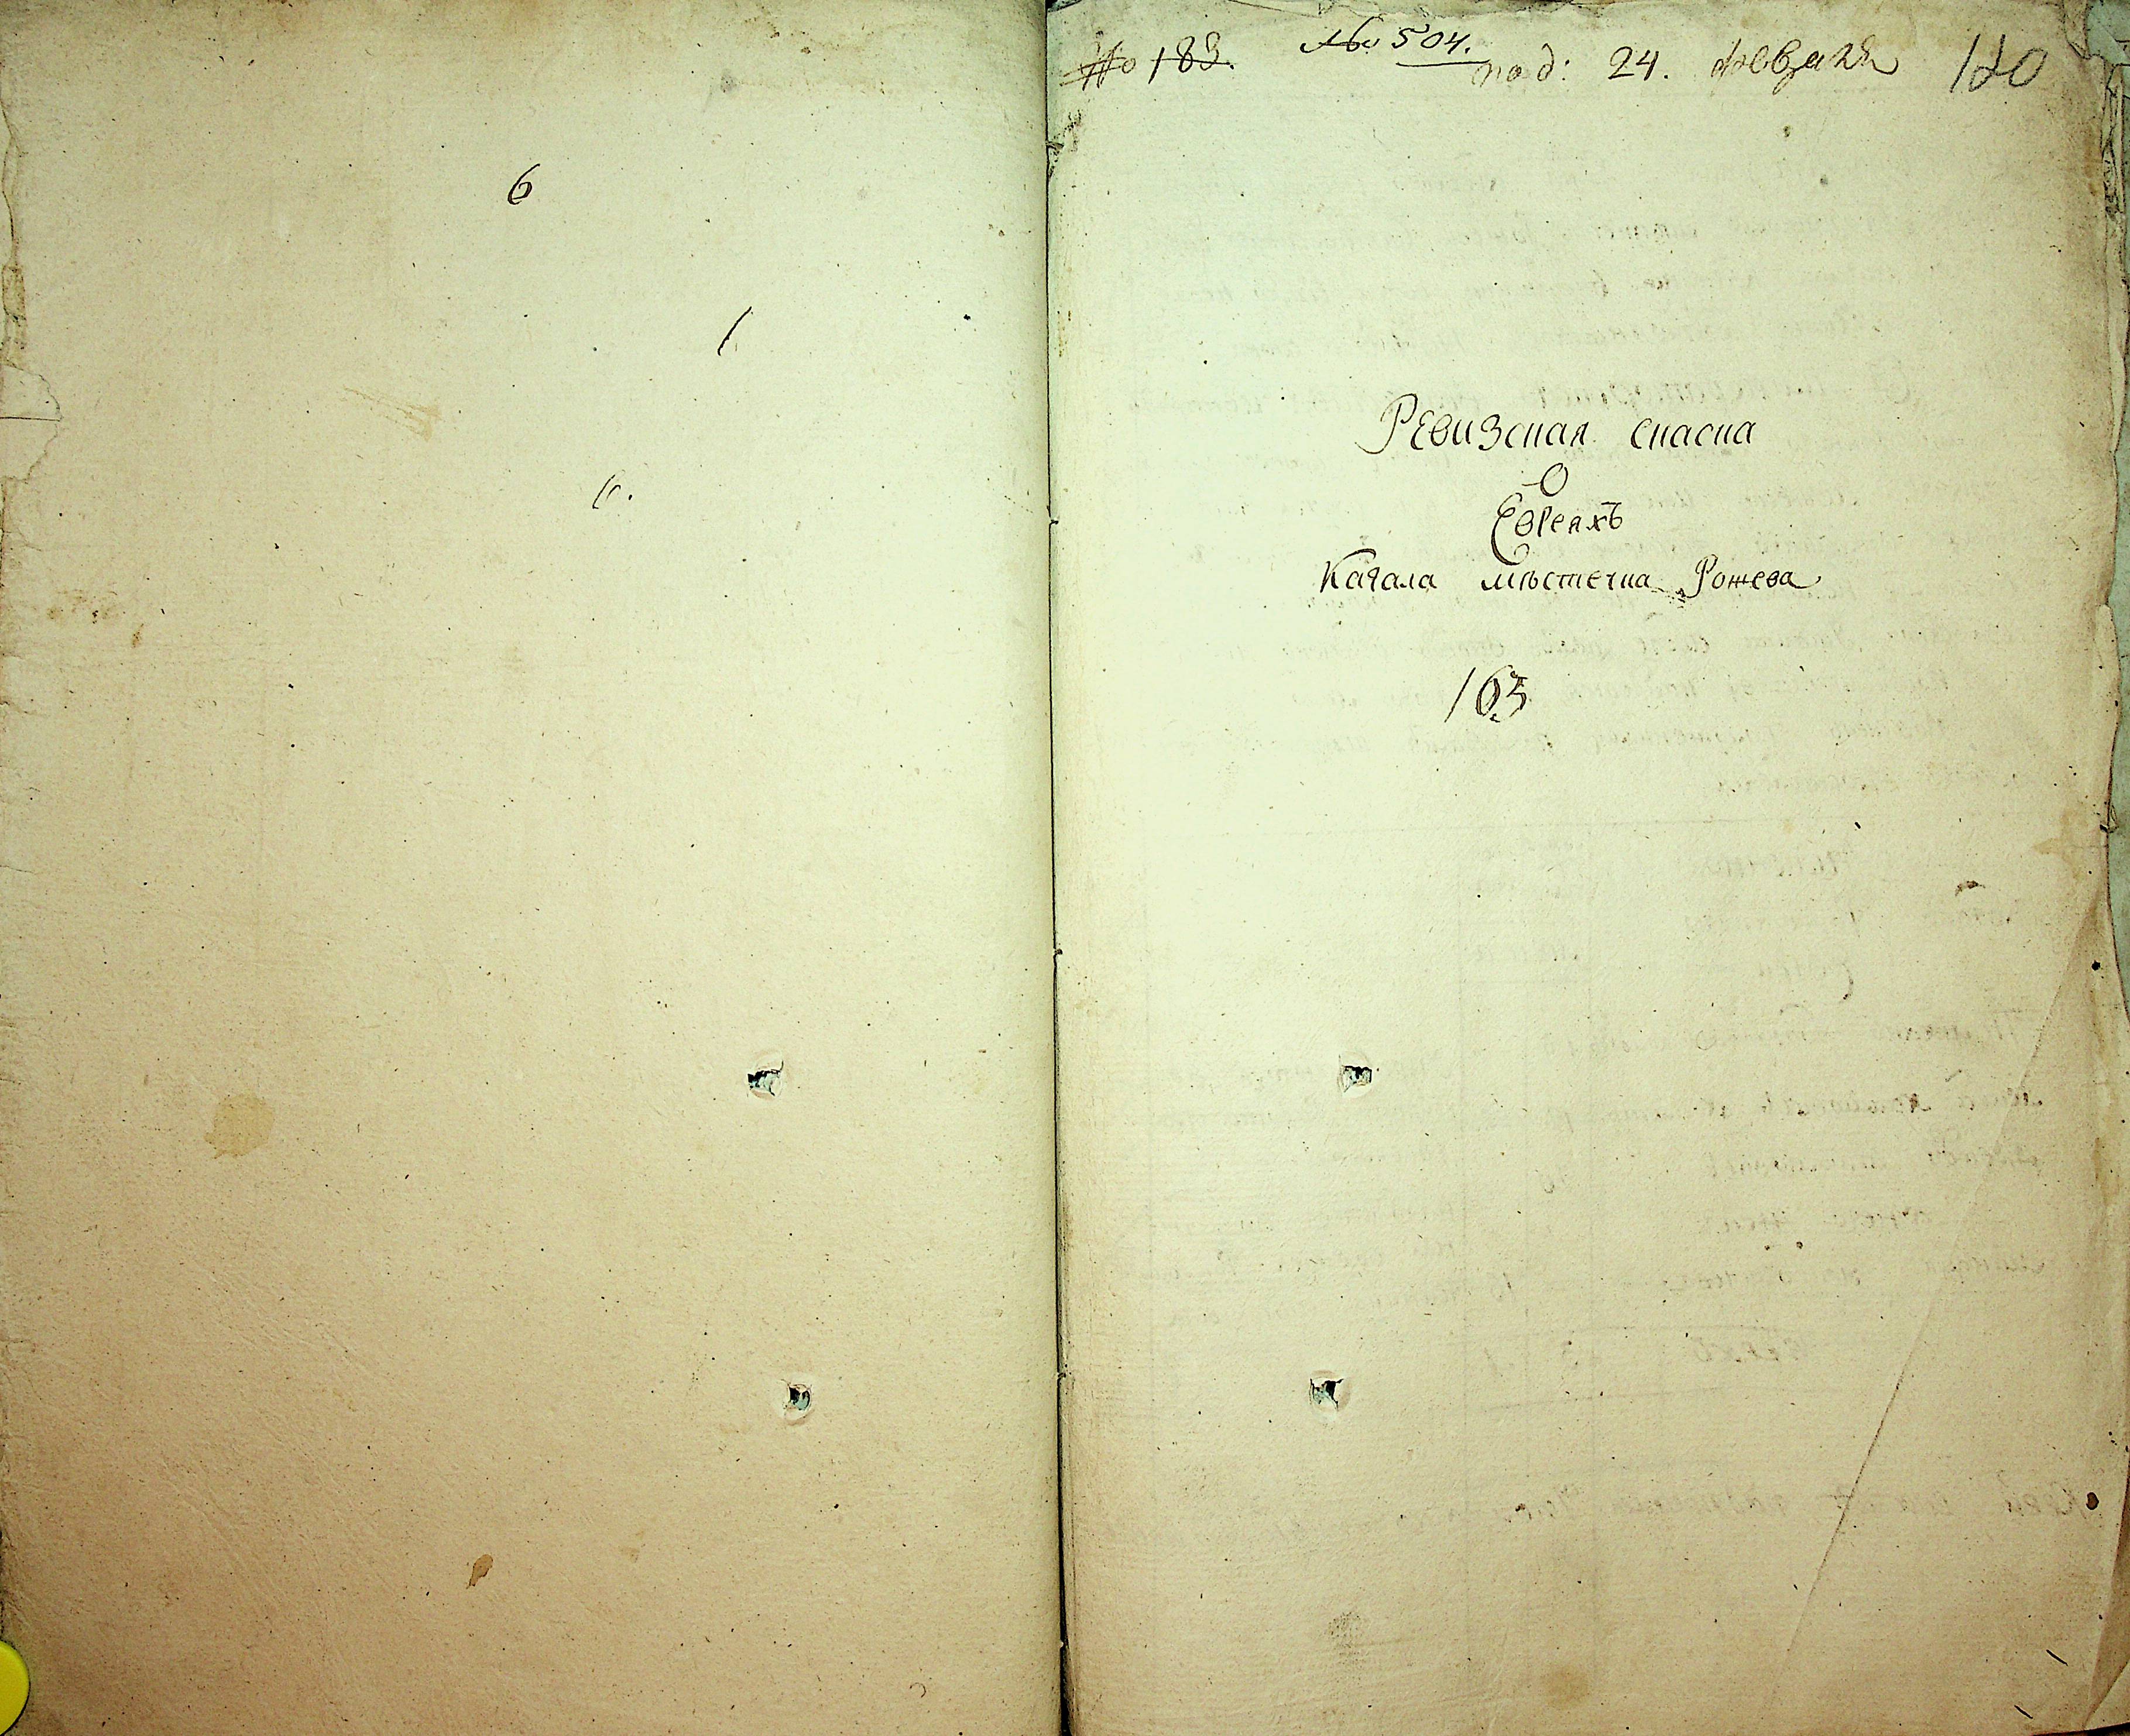 6
1
№ 183.
№ 504.
под: 24. февраля 120
Ревизская скаска
О
Евреяхъ
Кагала мѣстечка Рожева
165